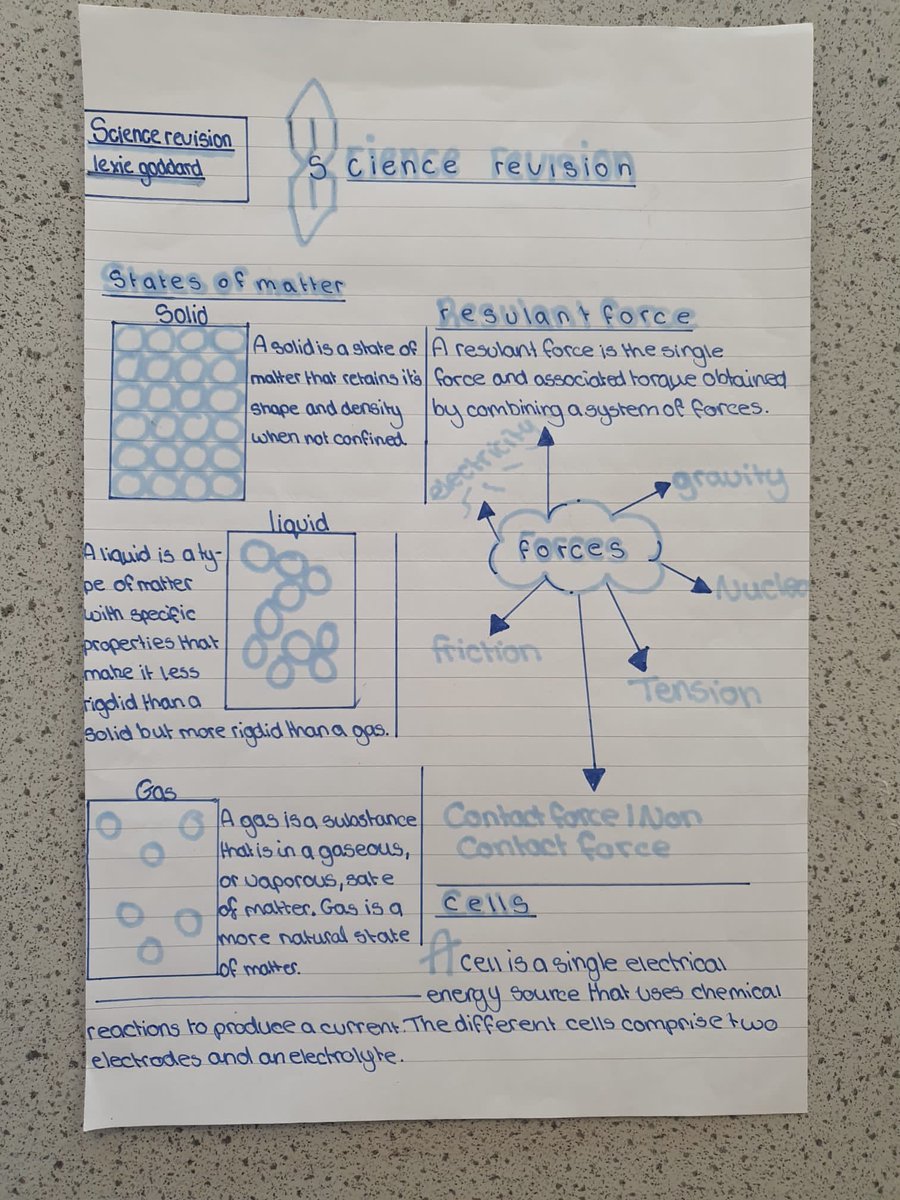 Science revision
lexie goddard
Science revision
States of matter
Solid
A solid is a state of
matter that retains it's
shape and density
when not confined.
liquid
A liquid is a ty-
pe of matter
with specific
properties that
make it less
rigdid than a
solid but more rigdid than a gas.
Gas
A gas is a substance
that is in a gaseous,
or vaporous, sate
of matter. Gas is a
more natural state
of matter.
Resulant force
A resulant force is the single
force and associated torque obtained
by combining a system of forces.
electricity
gravity
forces
Nuclea
friction
Tension
Contact force / Non
Contact force
Cells
A cell is a single electrical
energy source that uses chemical
reactions to produce a current. The different cells comprise two
electrodes and an electrolyte.